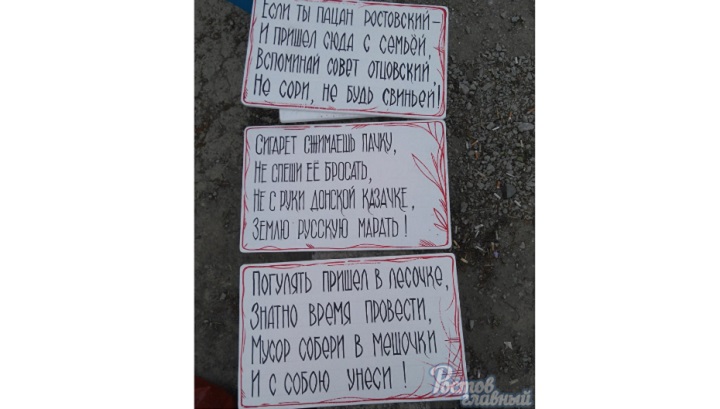 Если ты пацан ростовский –
И пришел сюда с семьёй,
Вспоминай совет отцовский,
Не сори, не будь свиньёй!
Сигарет сжимаешь пачку,
Не спеши её бросать,
Не с руки донской казачке,
Землю русскую марать!
Погулять пришел в лесочке,
Знатно время провести,
Мусор собери в мешочки
И с собою унеси!
Ростов
главный